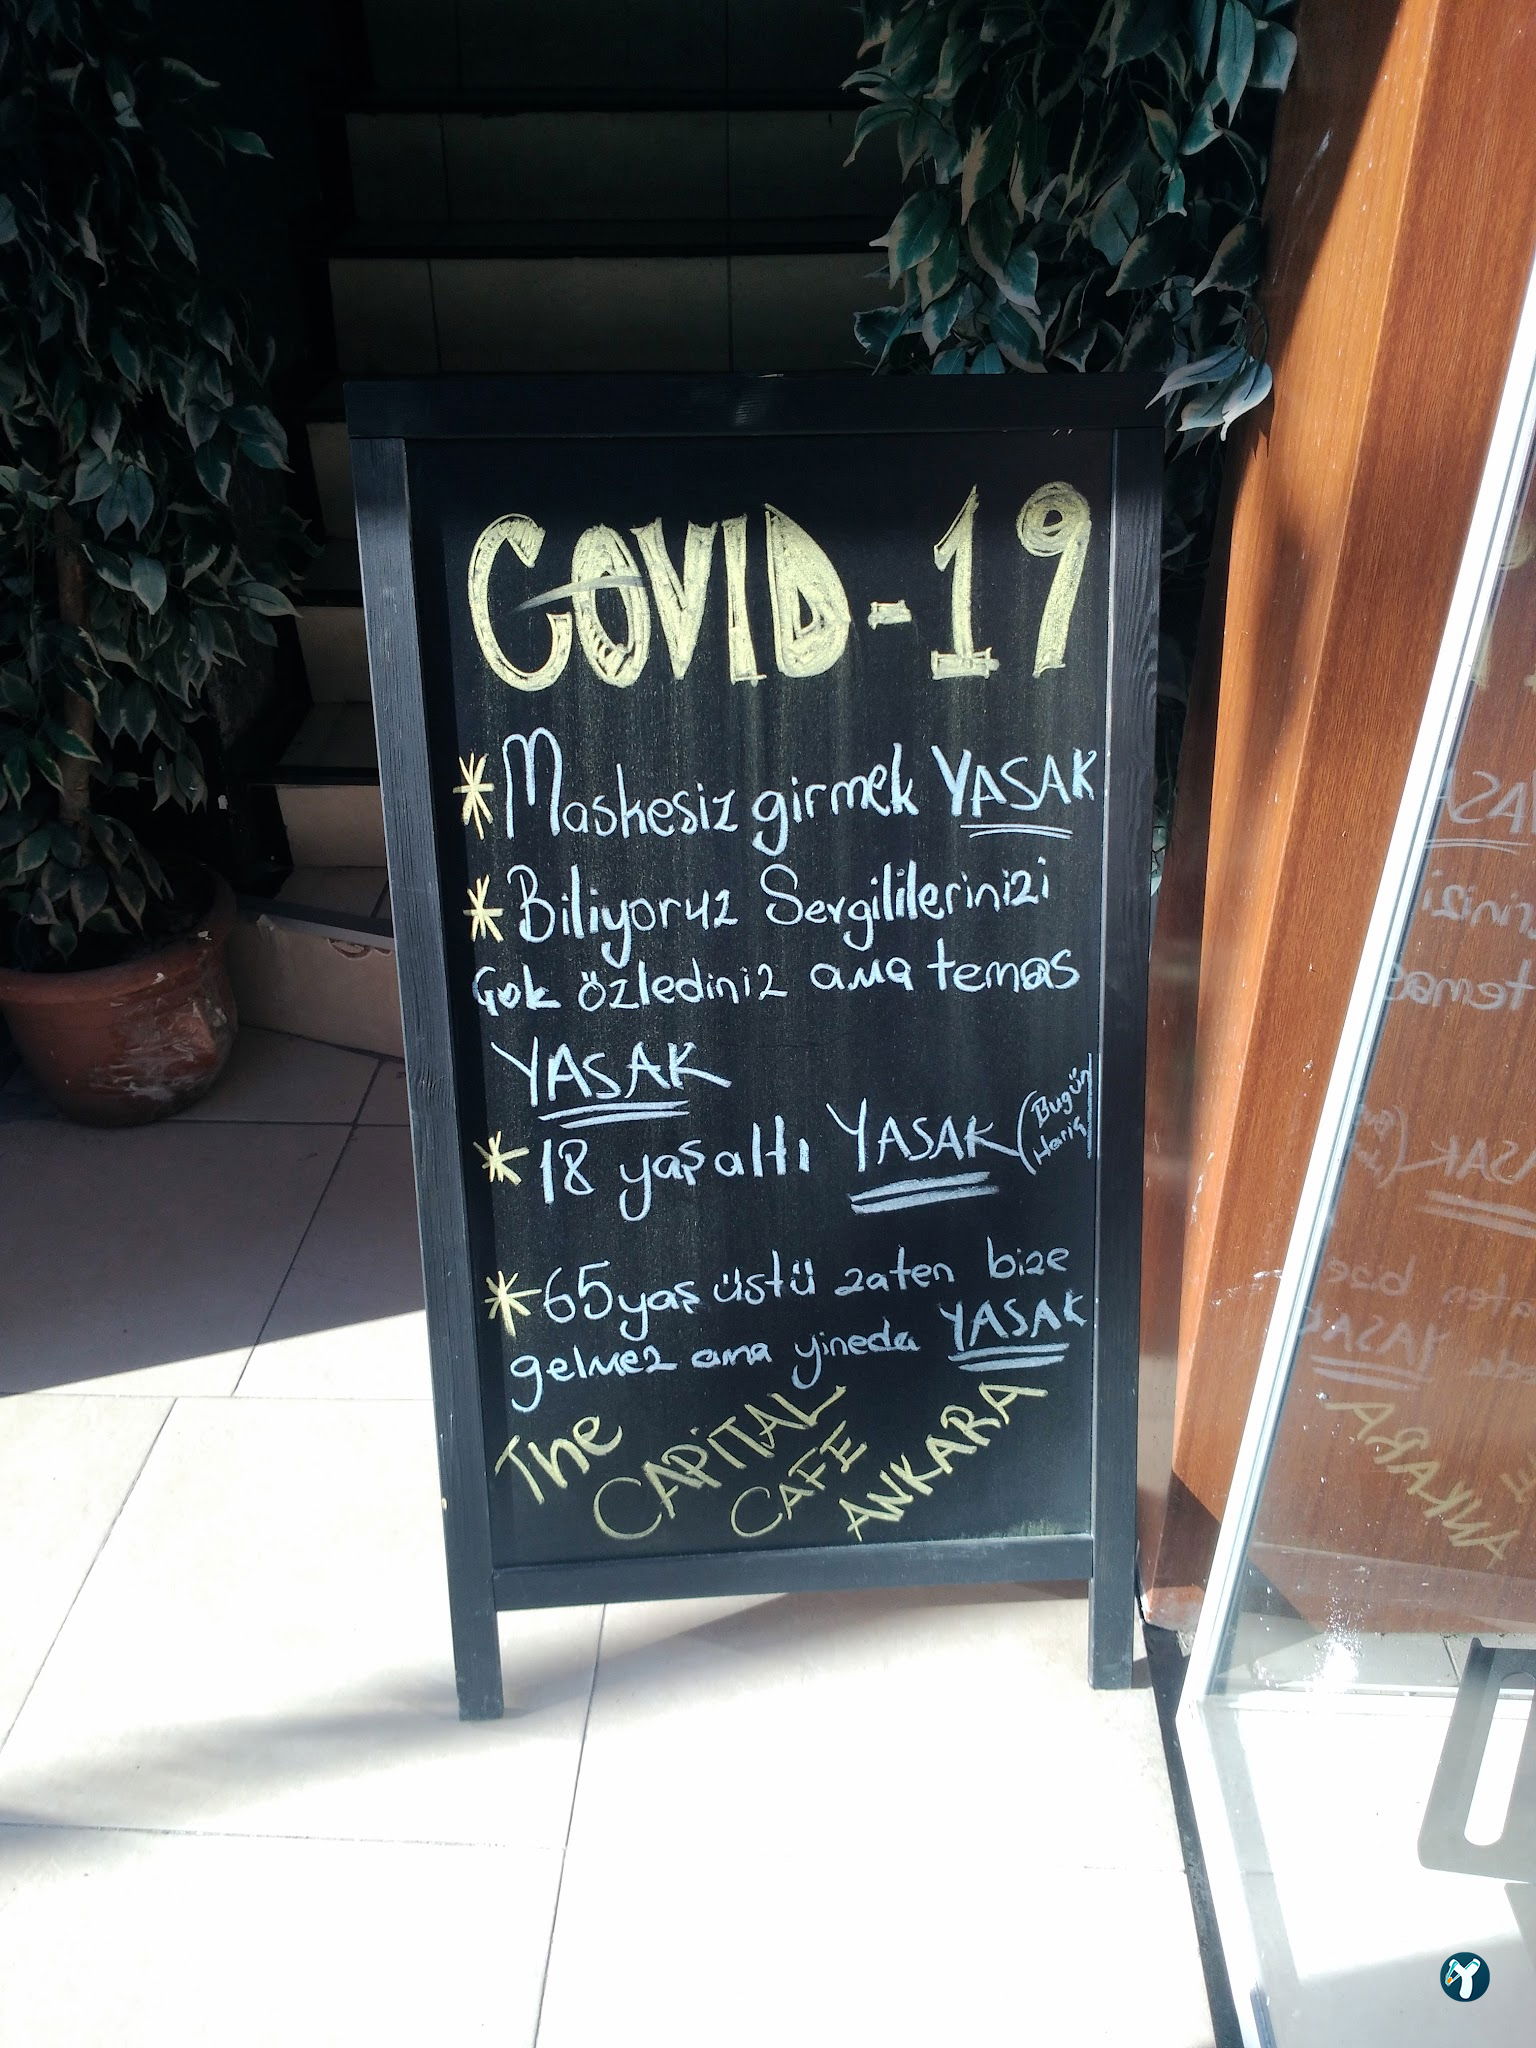 COVID-19
* Maskesiz girmek YASAK
* Biliyoruz Sevgililerinizi
Çok özlediniz ama temas
YASAK
* 18 yaş altı YASAK (Bugün Hariç)
* 65 yaş üstü zaten bize
gelmez ama yineda YASAK
The CAPİTAL CAFE ANKARA